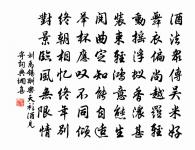 酒法衆傳吳米好
舞衣偏尚越羅輕
動搖浮蟻香濃甚
裝束輕鴻意態生
閱曲定知能自適
舉杯應嘆不同傾
終朝相憶終年別
對景臨風無限情
劉禹錫酬樂天衫酒見
寄